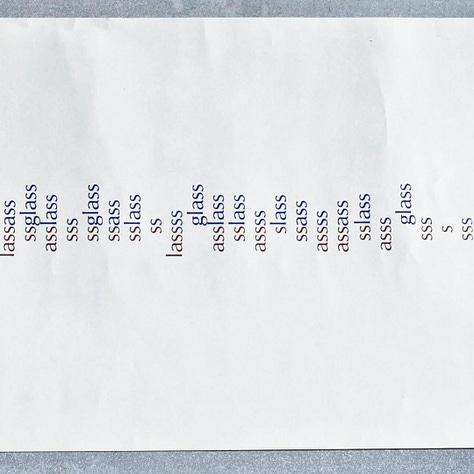 lassass
ssglass
asslass
sss
ssglass
ssass
sslass
ss
lassss
glass
asslass
sslass
assss
slass
ssass
assss
assass
sslass
asss
glass
sss
s
sss